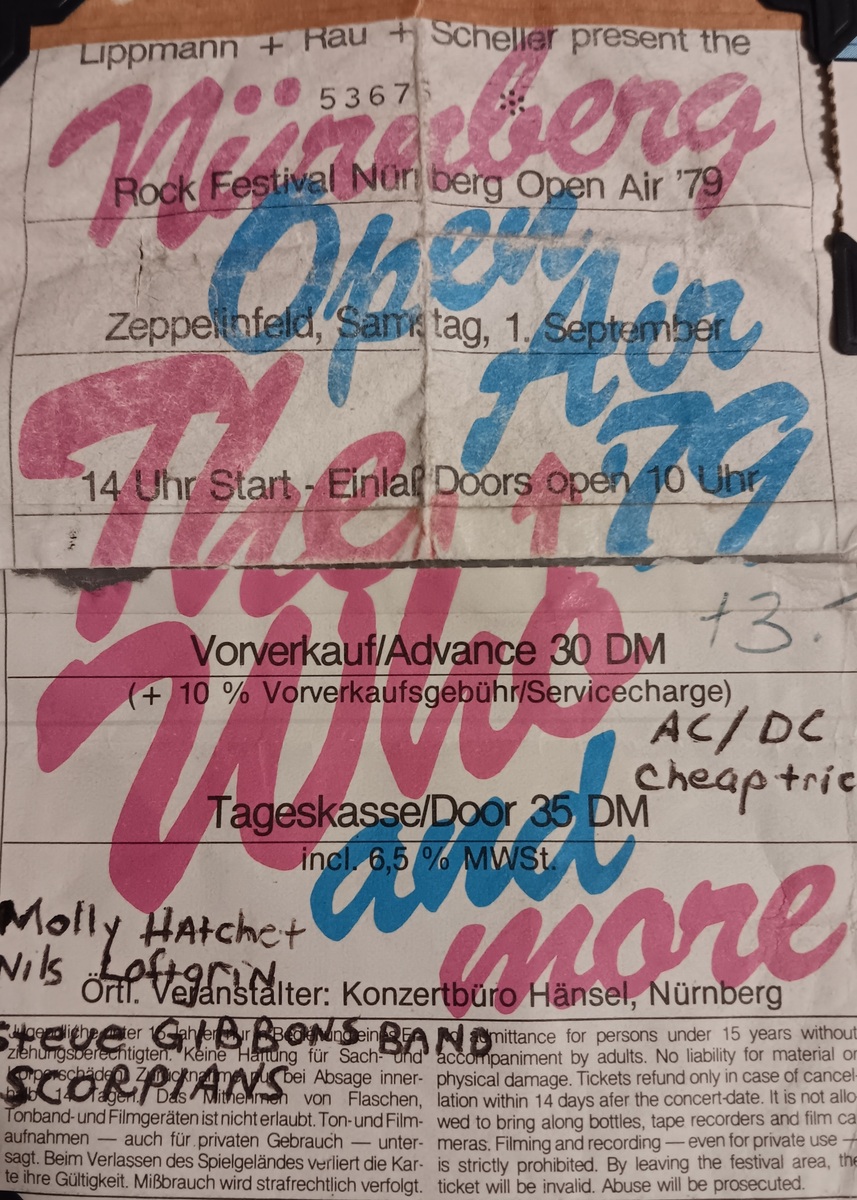 Lippmann + Rau + Scheller present the
5367
Nürnberg
Rock Festival Nürnberg Open Air '79
Open
Air
Zeppelinfeld, Samstag, 1. September
79
The
14 Uhr Start - Einlaß Doors open 10 Uhr
Who
+3.-
Vorverkauf/Advance 30 DM
(+ 10 % Vorverkaufsgebühr/Servicecharge)
AC/DC
Cheap tric
Tageskasse/Door 35 DM
incl. 6,5 % MWSt.
and
more
Molly HAtchet
Nils Loftgrin
Örtl. Veranstalter: Konzertbüro Hänsel, Nürnberg
Steve GIBBONS BAND
SCORPIANS
Jugendliche unter
ziehungsberechtigten. Keine Haftung für Sach- und
bei Absage inner-
Das Mitnehmen von Flaschen,
Tonband- und Filmgeräten ist nicht erlaubt. Ton- und Film-
aufnahmen — auch für privaten Gebrauch — unter-
sagt. Beim Verlassen des Spielgeländes verliert die Kar-
te ihre Gültigkeit. Mißbrauch wird strafrechtlich verfolgt.
admittance for persons under 15 years without
accompaniment by adults. No liability for material or
physical damage. Tickets refund only in case of cancel-
lation within 14 days afer the concert-date. It is not allo-
wed to bring along bottles, tape recorders and film ca-
meras. Filming and recording — even for private use —
is strictly prohibited. By leaving the festival area, the
ticket will be invalid. Abuse will be prosecuted.